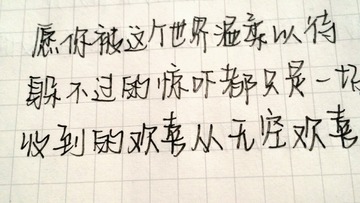 愿你被这个世界温柔以待
躲不过的惊吓都只是一场
收到的欢喜从无空欢喜